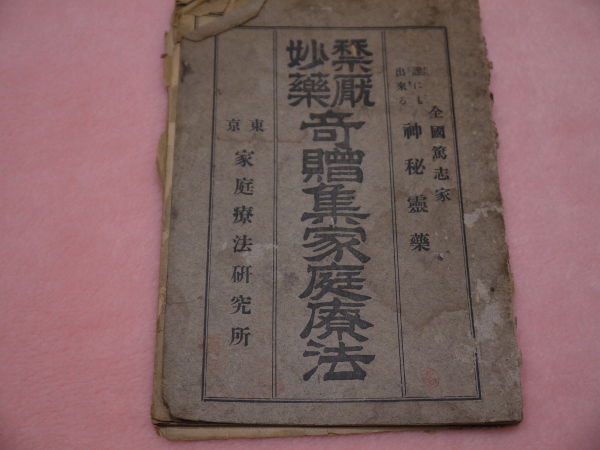 全國篤志家
誰にも
出來る
神秘靈藥
禁厭
妙藥
奇贈集家庭療法
東京
家庭療法硏究所